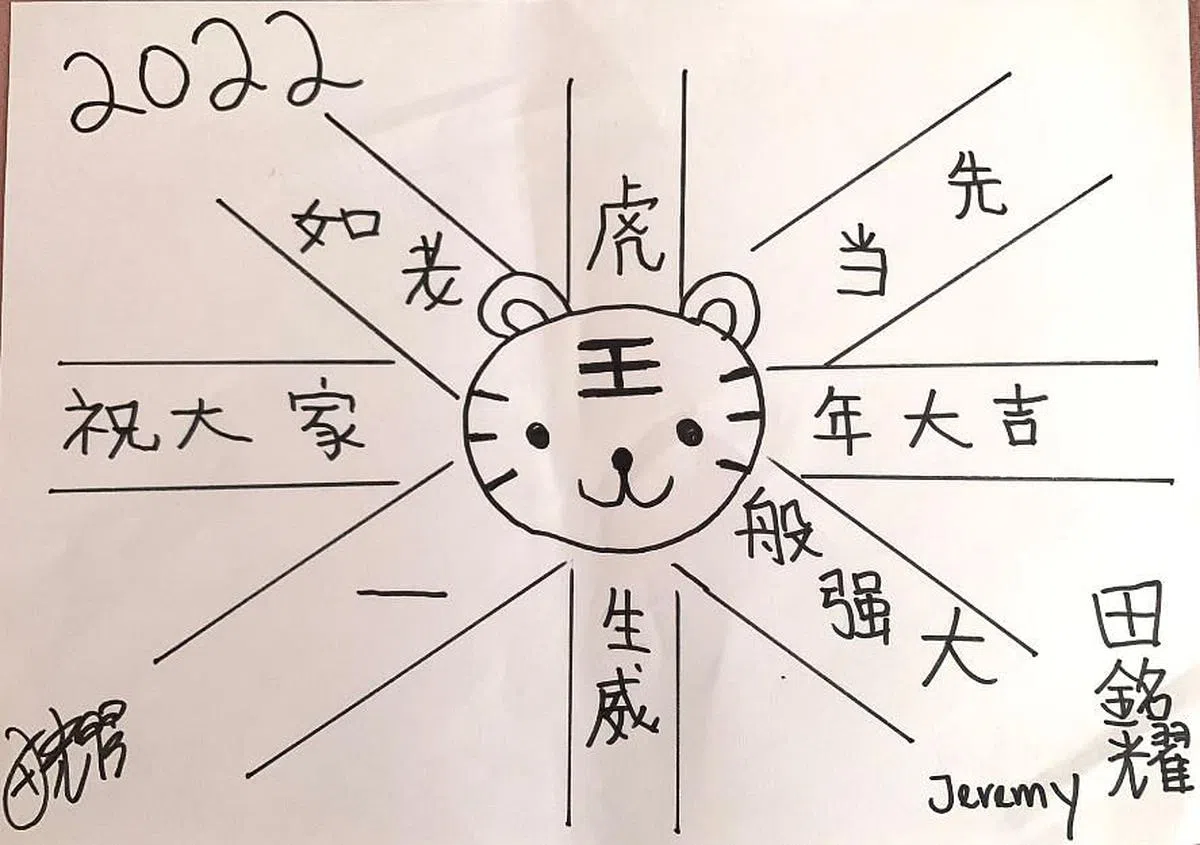 2022
如老
虎
当先
祝大家
王
年大吉
一
生威
般强大
田銘耀
Jeremy